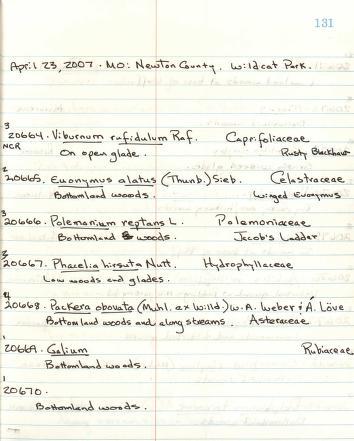 131
April 23, 2007 · MO: Newton County. Wildcat Park.
3
20664. Viburnum rufidulum Raf. Caprifoliaceae
NCR On open glade. Rusty Blackhaw
2
20665. Euonymus alatus (Thunb.) Sieb. Celastraceae
Bottomland woods. Winged Euonymus
3
20666. Polemonium reptans L. Polemoniaceae
Bottomland woods. Jacob's Ladder
3
20667. Phacelia hirsuta Nutt. Hydrophyllaceae
Low woods and glades.
4
20668. Packera obovata (Muhl. ex Willd.) W.A. Weber & Á. Löve
Bottomland woods and along streams. Asteraceae
1
20669. Galium Rubiaceae
Bottomland woods.
1
20670.
Bottomland woods.